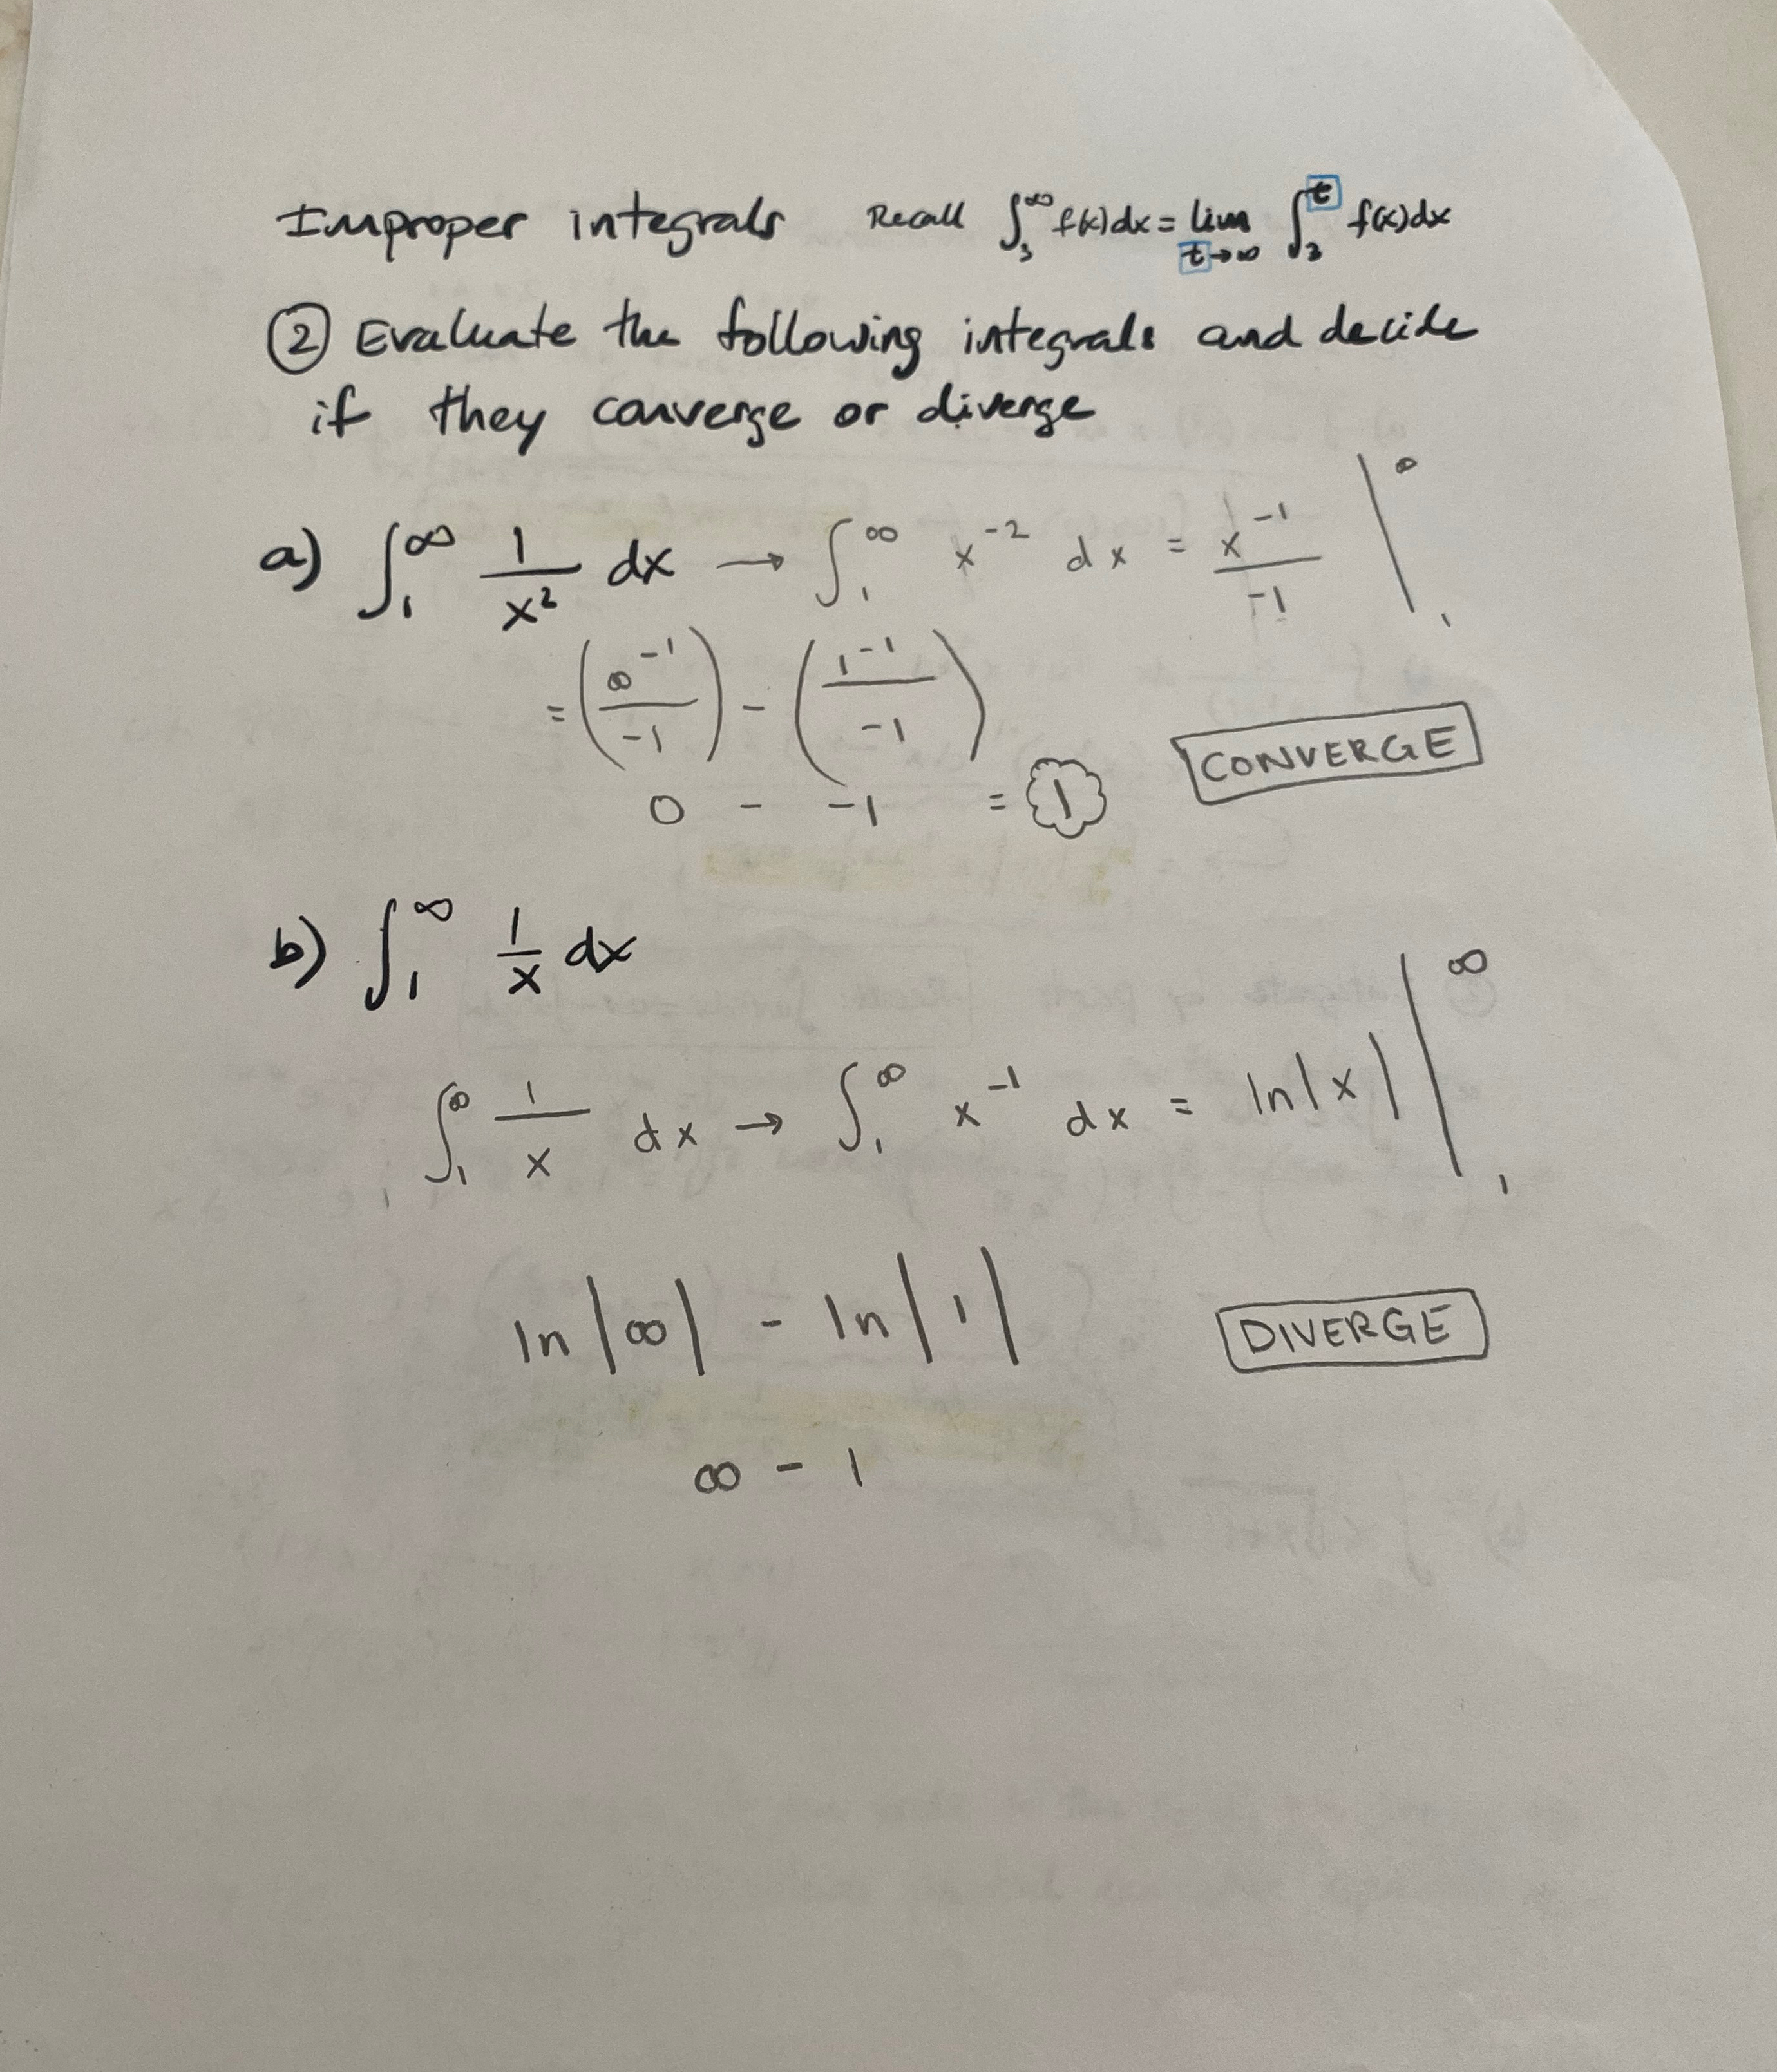 Improper integrals Recall ∫₃^∞ f(x)dx = lim_{t→∞} ∫₃^t f(x)dx
② Evaluate the following integrals and decide
if they converge or diverge
a) ∫₁^∞ 1/x² dx → ∫₁^∞ x⁻² dx = x⁻¹/-1 |₁^∞
= (∞⁻¹/-1) - (1⁻¹/-1)
CONVERGE
0 - -1 = 1
b) ∫₁^∞ 1/x dx
∫₁^∞ 1/x dx → ∫₁^∞ x⁻¹ dx = ln|x| |₁^∞
ln|∞| - ln|1| DIVERGE
∞ - 1